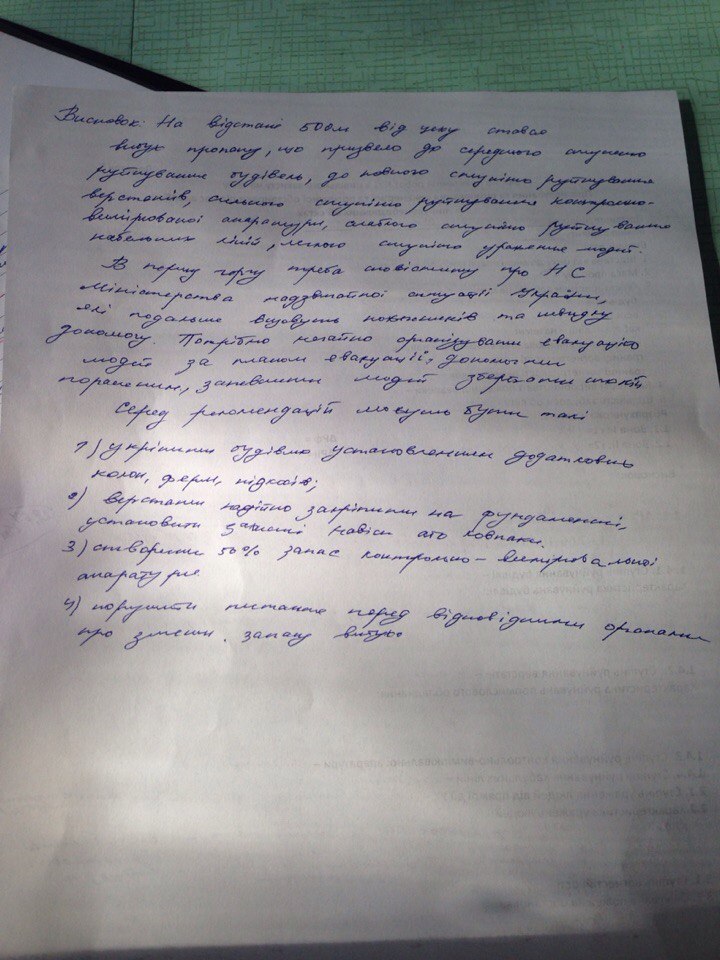 Висновок: На відстані 500м від цеху стався
вибух пропану, що призвело до середнього ступеню
руйнування будівель, до повного ступіню руйнування
верстатів, сильного ступіню руйнування контрольно-
вимірювальної апаратури, слабого ступіню руйнування
кабельних ліній, легкого ступіню ураження людей.
В першу чергу треба сповістити про НС
Міністерства надзвичайної ситуації України,
які подальше визовуть пожежників та швидку
допомогу. Потрібно негайно організувати евакуацію
людей за планом евакуації, допомогти
пораненим, заневнити людей зберігати спокій
Серед рекомендацій можуть бути такі
1) укріпити будівлю установленням додаткових
колон, ферм, підкосів;
2) верстати надійно закріпити на фундаменті,
установити захисні навіси або ковпаки.
3) створити 50% запас контрольно-вимірювальної
апаратури
4) порушити питання перед відповідними органами
про зменш. запасу вибухо